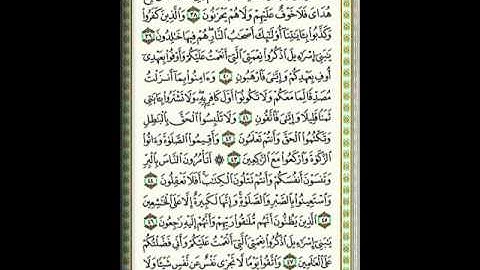 هُدَايَ فَلَا خَوْفٌ عَلَيْهِمْ وَلَا هُمْ يَحْزَنُونَ ٣٨ وَالَّذِينَ كَفَرُوا
وَكَذَّبُوا بِآيَاتِنَا أُولَٰئِكَ أَصْحَابُ النَّارِ هُمْ فِيهَا خَالِدُونَ ٣٩
يَا بَنِي إِسْرَائِيلَ اذْكُرُوا نِعْمَتِيَ الَّتِي أَنْعَمْتُ عَلَيْكُمْ وَأَوْفُوا بِعَهْدِي
أُوفِ بِعَهْدِكُمْ وَإِيَّايَ فَارْهَبُونِ ٤٠ وَآمِنُوا بِمَا أَنْزَلْتُ
مُصَدِّقًا لِمَا مَعَكُمْ وَلَا تَكُونُوا أَوَّلَ كَافِرٍ بِهِ وَلَا تَشْتَرُوا بِآيَاتِي
ثَمَنًا قَلِيلًا وَإِيَّايَ فَاتَّقُونِ ٤١ وَلَا تَلْبِسُوا الْحَقَّ بِالْبَاطِلِ
وَتَكْتُمُوا الْحَقَّ وَأَنْتُمْ تَعْلَمُونَ ٤٢ وَأَقِيمُوا الصَّلَاةَ وَآتُوا
الزَّكَاةَ وَارْكَعُوا مَعَ الرَّاكِعِينَ ٤٣ ۞ أَتَأْمُرُونَ النَّاسَ بِالْبِرِّ
وَتَنْسَوْنَ أَنْفُسَكُمْ وَأَنْتُمْ تَتْلُونَ الْكِتَابَ أَفَلَا تَعْقِلُونَ ٤٤
وَاسْتَعِينُوا بِالصَّبْرِ وَالصَّلَاةِ وَإِنَّهَا لَكَبِيرَةٌ إِلَّا عَلَى الْخَاشِعِينَ
٤٥ الَّذِينَ يَظُنُّونَ أَنَّهُمْ مُلَاقُو رَبِّهِمْ وَأَنَّهُمْ إِلَيْهِ رَاجِعُونَ ٤٦
يَا بَنِي إِسْرَائِيلَ اذْكُرُوا نِعْمَتِيَ الَّتِي أَنْعَمْتُ عَلَيْكُمْ وَأَنِّي فَضَّلْتُكُمْ
عَلَى الْعَالَمِينَ ٤٧ وَاتَّقُوا يَوْمًا لَا تَجْزِي نَفْسٌ عَنْ نَفْسٍ شَيْئًا وَلَا